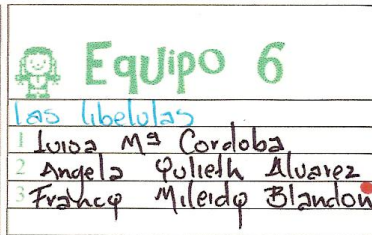 Equipo 6
las libelulas
1 Luisa Mª Cordoba
2 Angela Yulieth Alvarez
3 Francy Mileidy Blandon